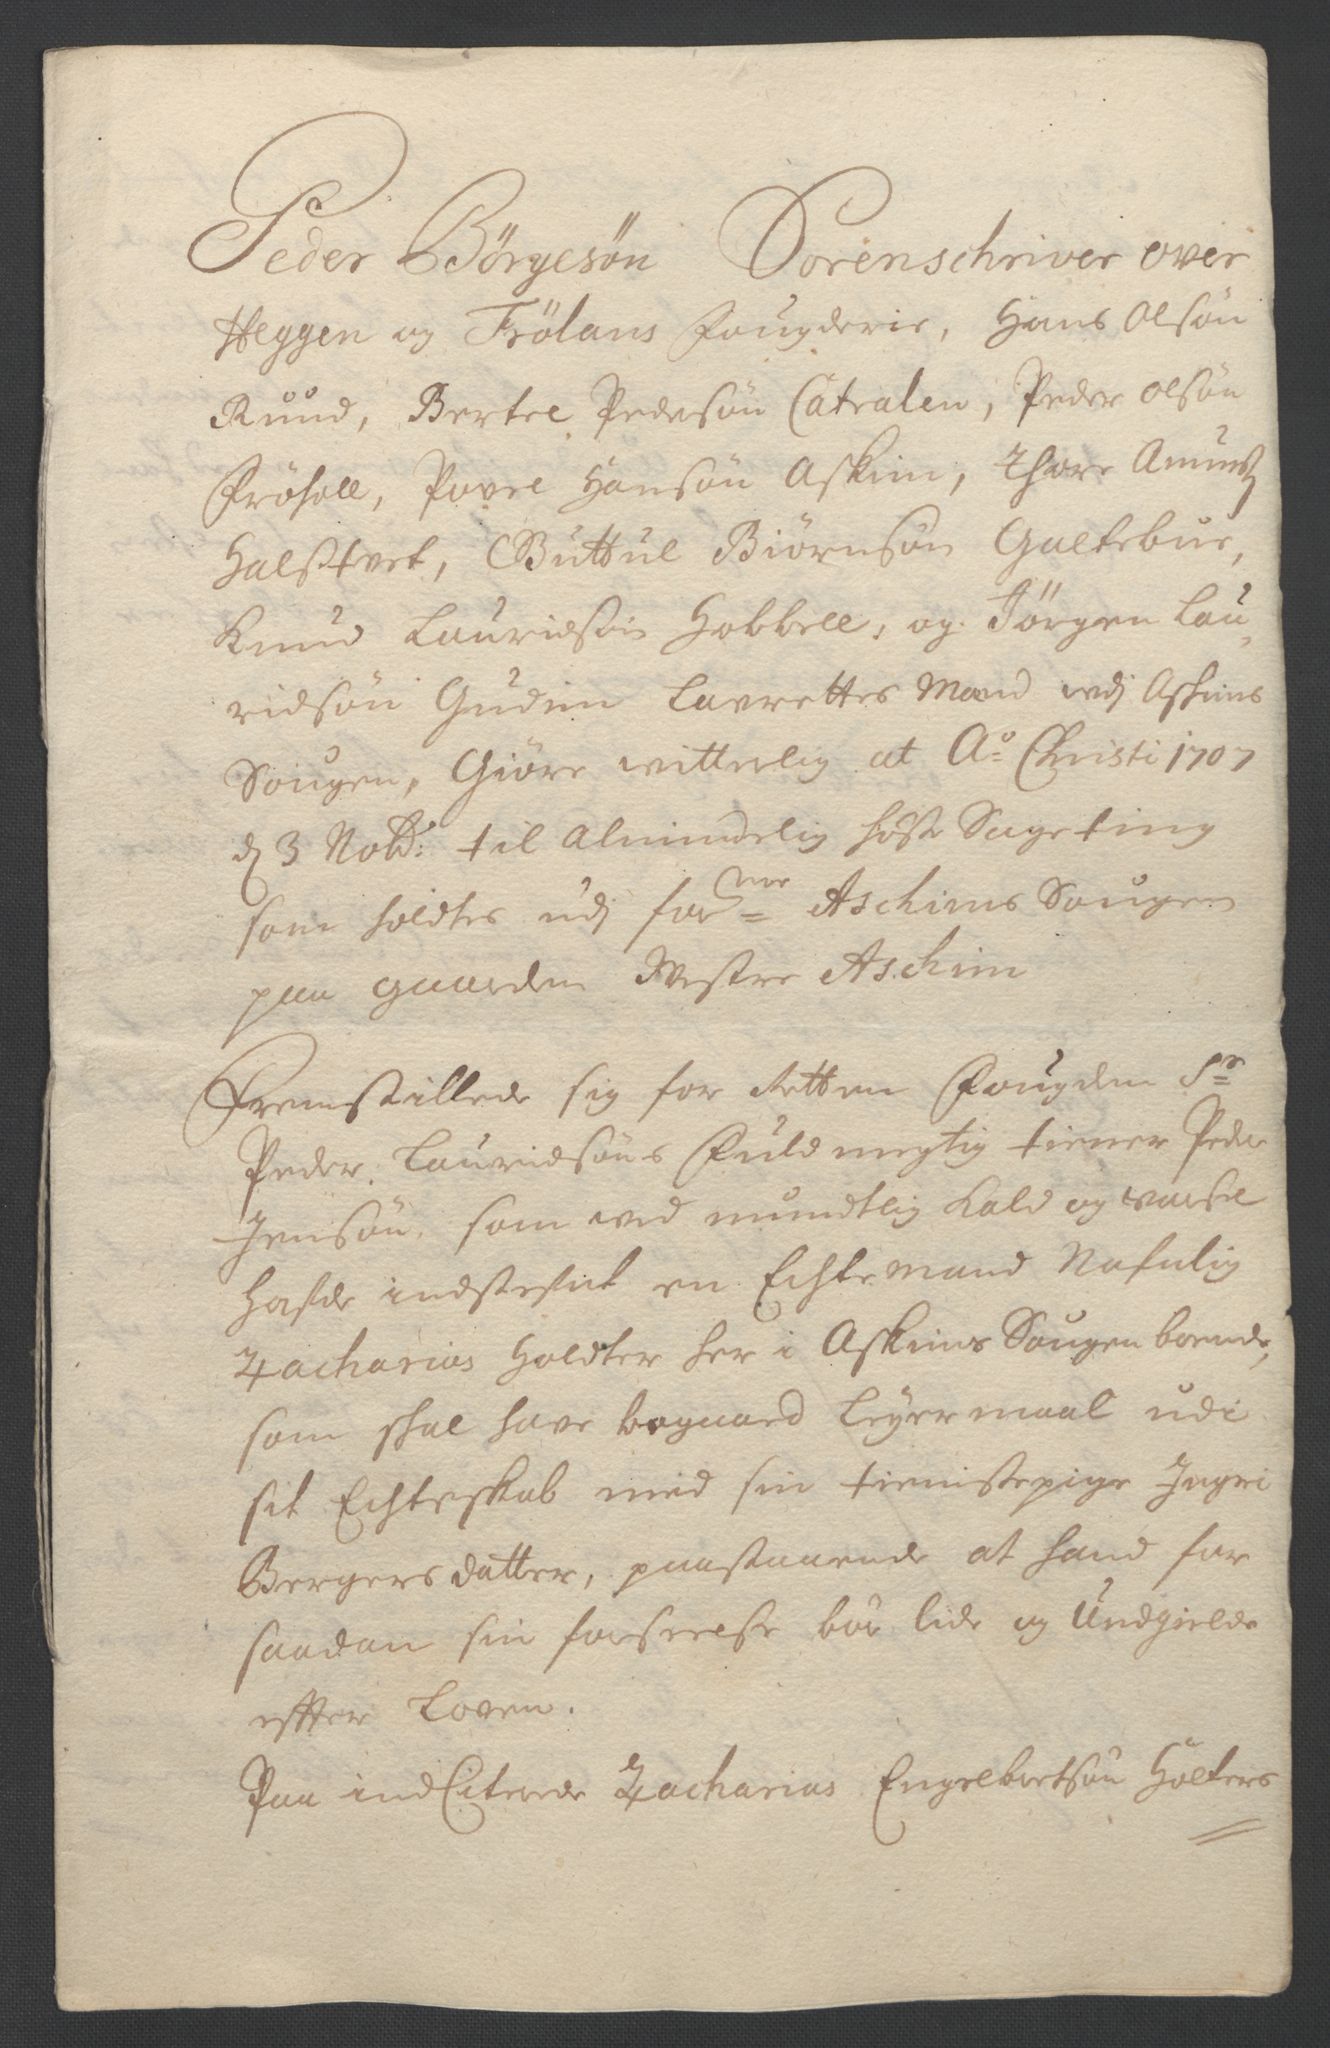 Peder Börgesön Sorenschriver over
Heggen og Frölans fougderie, Hans Olsön
Ruud, Bertel Pedersön Catralen, Peder Olsön
Frösholl, Povel Hansön Askim, Thore Amundß
Halstvet, Guttul Biörnsön Galtebue,
Knud Lauridsön Hobbell, og Jörgen Lau„
ridsön Gudim Laurettes Mænd udj Askims
Sougen, Giöre witterlig at Aͦ Christi 1707
dj 3 Nobr: til Almindelig höste Sageting
som holdtes udj forne Aschims Sougen
paa gaarden Westre Aschim
Fremstillede sig for Retten Fougden Sr
Peder Lauridsöns Fuldmegtig tiener Peder
Jensön, som ved mundtlig Kald og varsel
hafde indstefnt en Echtemand Nafnlig
Zacharias Holdter her i Askims Sougen boende,
som skal have begaaed Leyermaal udi
sit Echteskab med sin tienistepige Ingri
Bergersdatter, paastaaende at hand for
saadan sin forseelse bör lide og Undgielde
effter Loven.
Paa indCiterede Zacharias Engelbretsön Holters